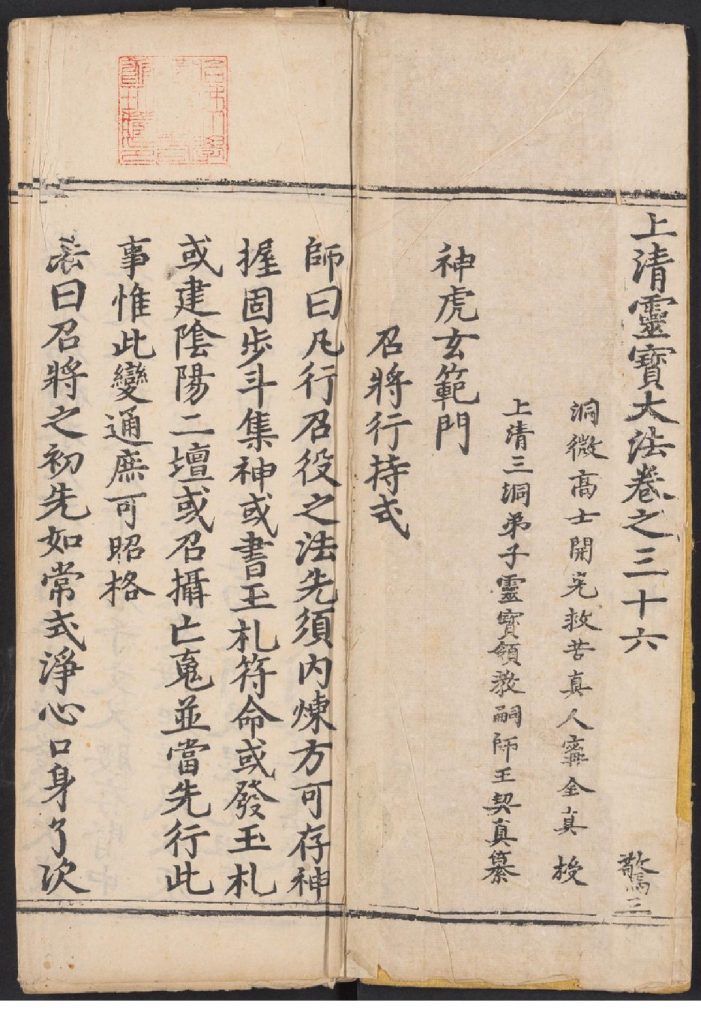 上清靈寶大法卷之三十六
驚三
洞微高士開光救苦真人寗全真授
上清三洞弟子靈寶領教嗣師王契真纂
神虎玄範門
召將行持式
師曰凡行召役之法先須內煉方可存神
握固步斗集神或書玉札符命或發玉札
或建陰陽二壇或召攝亡䰟並當先行此
事惟此變通庶可昭格
法曰召將之初先如常式淨心口身了次